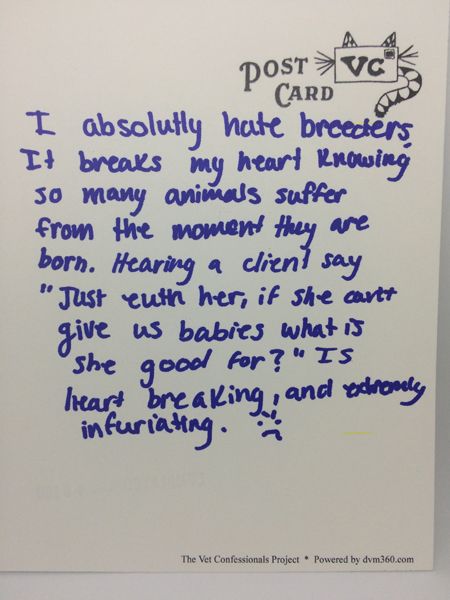 POST CARD
VC
I absolutly hate breeders.
It breaks my heart knowing
so many animals suffer
from the moment they are
born. Hearing a client say
"Just euth her, if she can't
give us babies what is
she good for?" Is
heart breaking, and extremely
infuriating. :(
The Vet Confessionals Project * Powered by dvm360.com